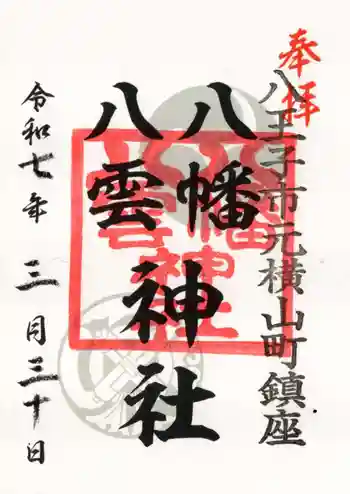 奉拝
八王子市元横山町鎮座
八幡
八雲
神社
令和七年 三月三十日